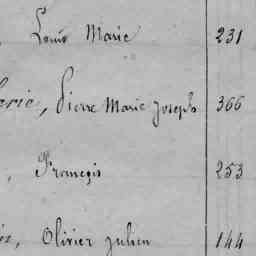 , Louis Marie 231
arie, Pierre Marie Joseph 366
, François 253
Olivier Julien 144